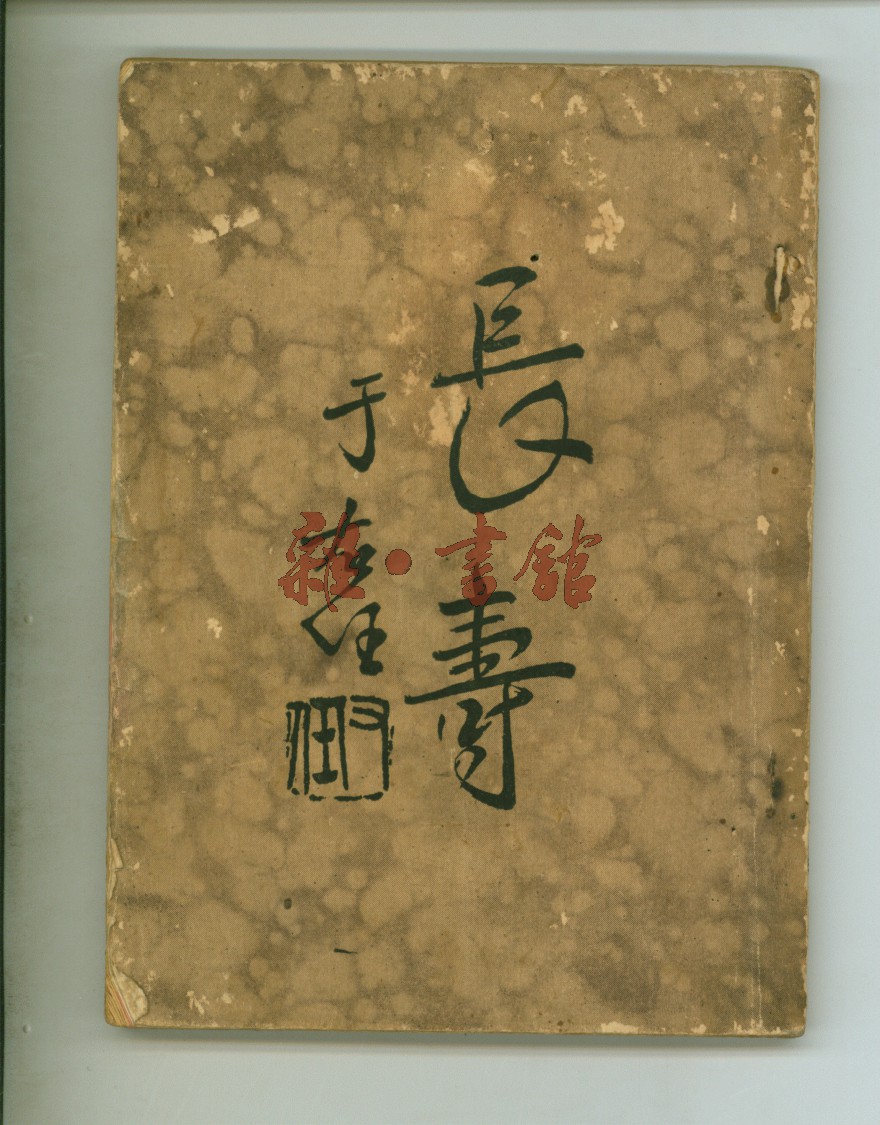 長壽
于右任
右任
雜·書館